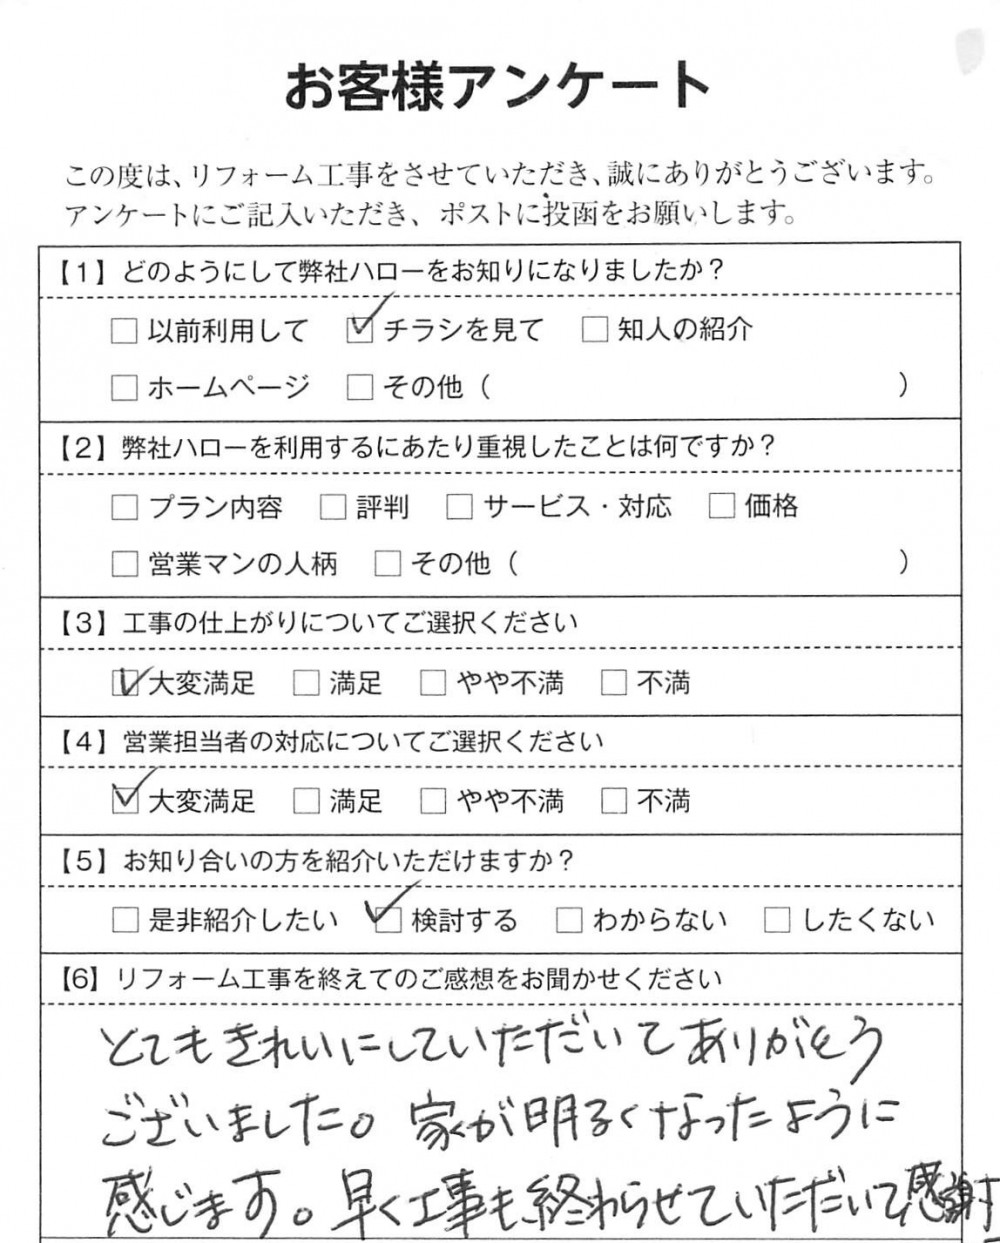 お客様アンケート
この度は、リフォーム工事をさせていただき、誠にありがとうございます。
アンケートにご記入いただき、ポストに投函をお願いします。
【1】どのようにして弊社ハローをお知りになりましたか？
□ 以前利用して ☑ チラシを見て □ 知人の紹介
□ ホームページ □ その他（ ）
【2】弊社ハローを利用するにあたり重視したことは何ですか？
□ プラン内容 □ 評判 □ サービス・対応 □ 価格
□ 営業マンの人柄 □ その他（ ）
【3】工事の仕上がりについてご選択ください
☑ 大変満足 □ 満足 □ やや不満 □ 不満
【4】営業担当者の対応についてご選択ください
☑ 大変満足 □ 満足 □ やや不満 □ 不満
【5】お知り合いの方を紹介いただけますか？
□ 是非紹介したい ☑ 検討する □ わからない □ したくない
【6】リフォーム工事を終えてのご感想をお聞かせください
とてもきれいにしていただいてありがとう
ございました。家が明るくなったように
感じます。早く工事も終わらせていただいて感謝